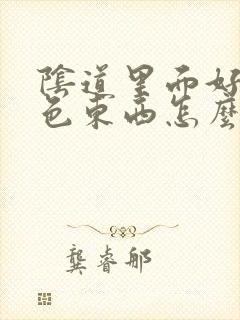 陰道里面好
色東西怎麼
龔睿郍